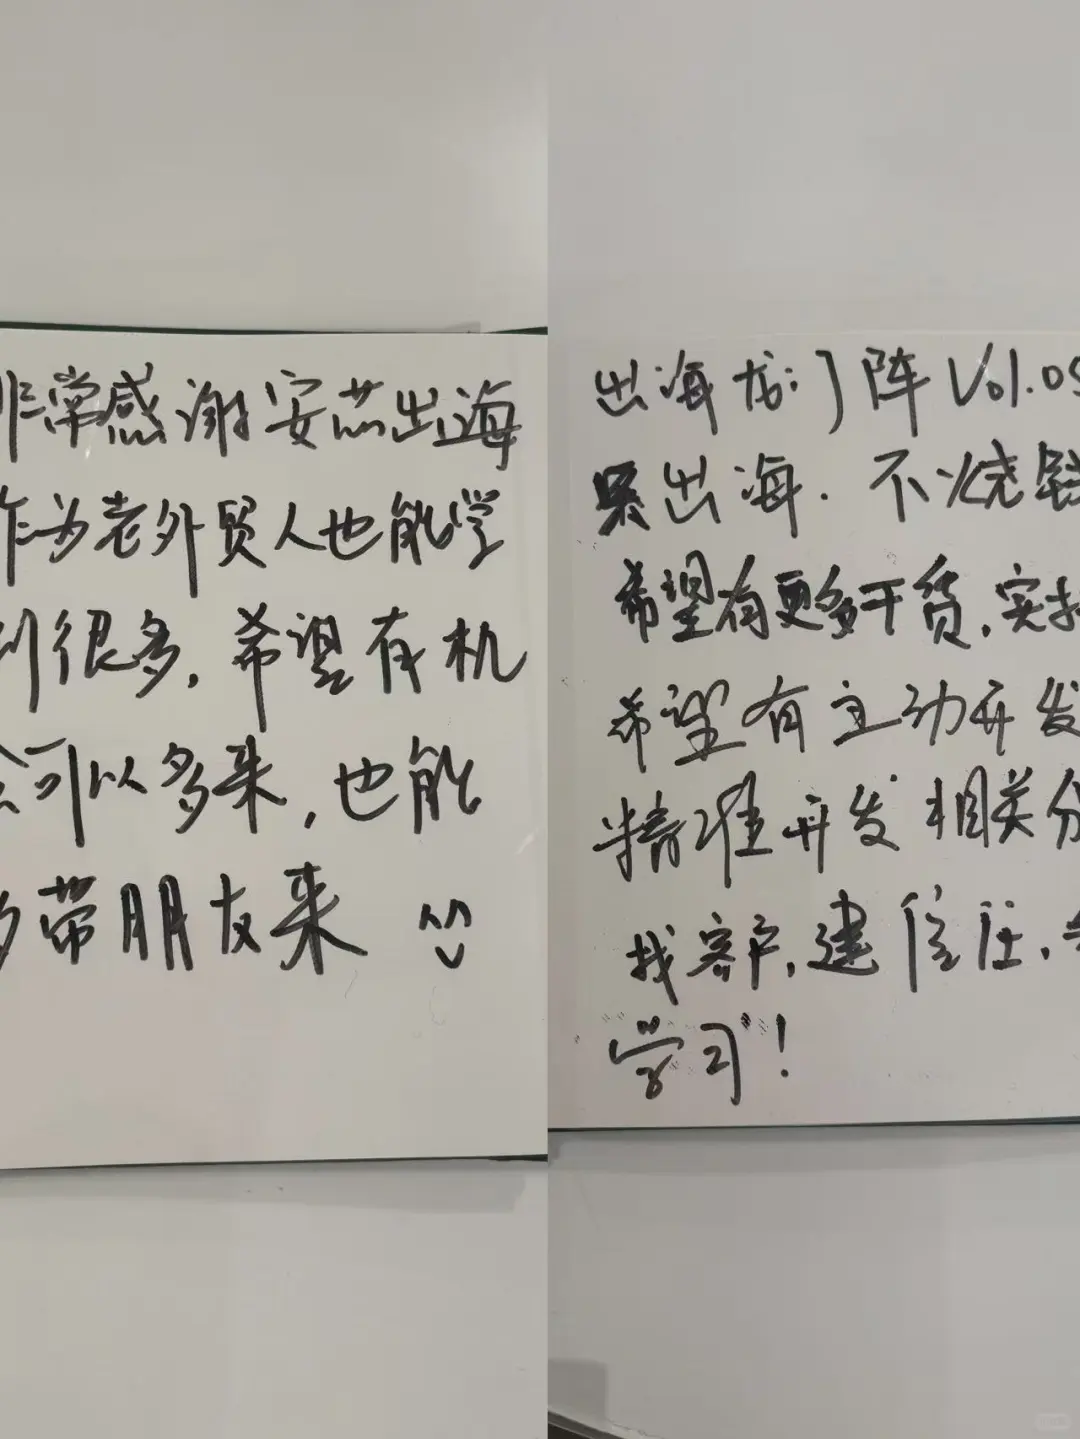 非常感谢安芯出海
作为老外贸人也能学
到很多,希望有机
会可以多来,也能
多带朋友来
出海龙门阵 Vol.05
出海.不烧钱
希望有更多干货,实
希望有主动开发
精准开发相关分
找客户,建信任,
学习!